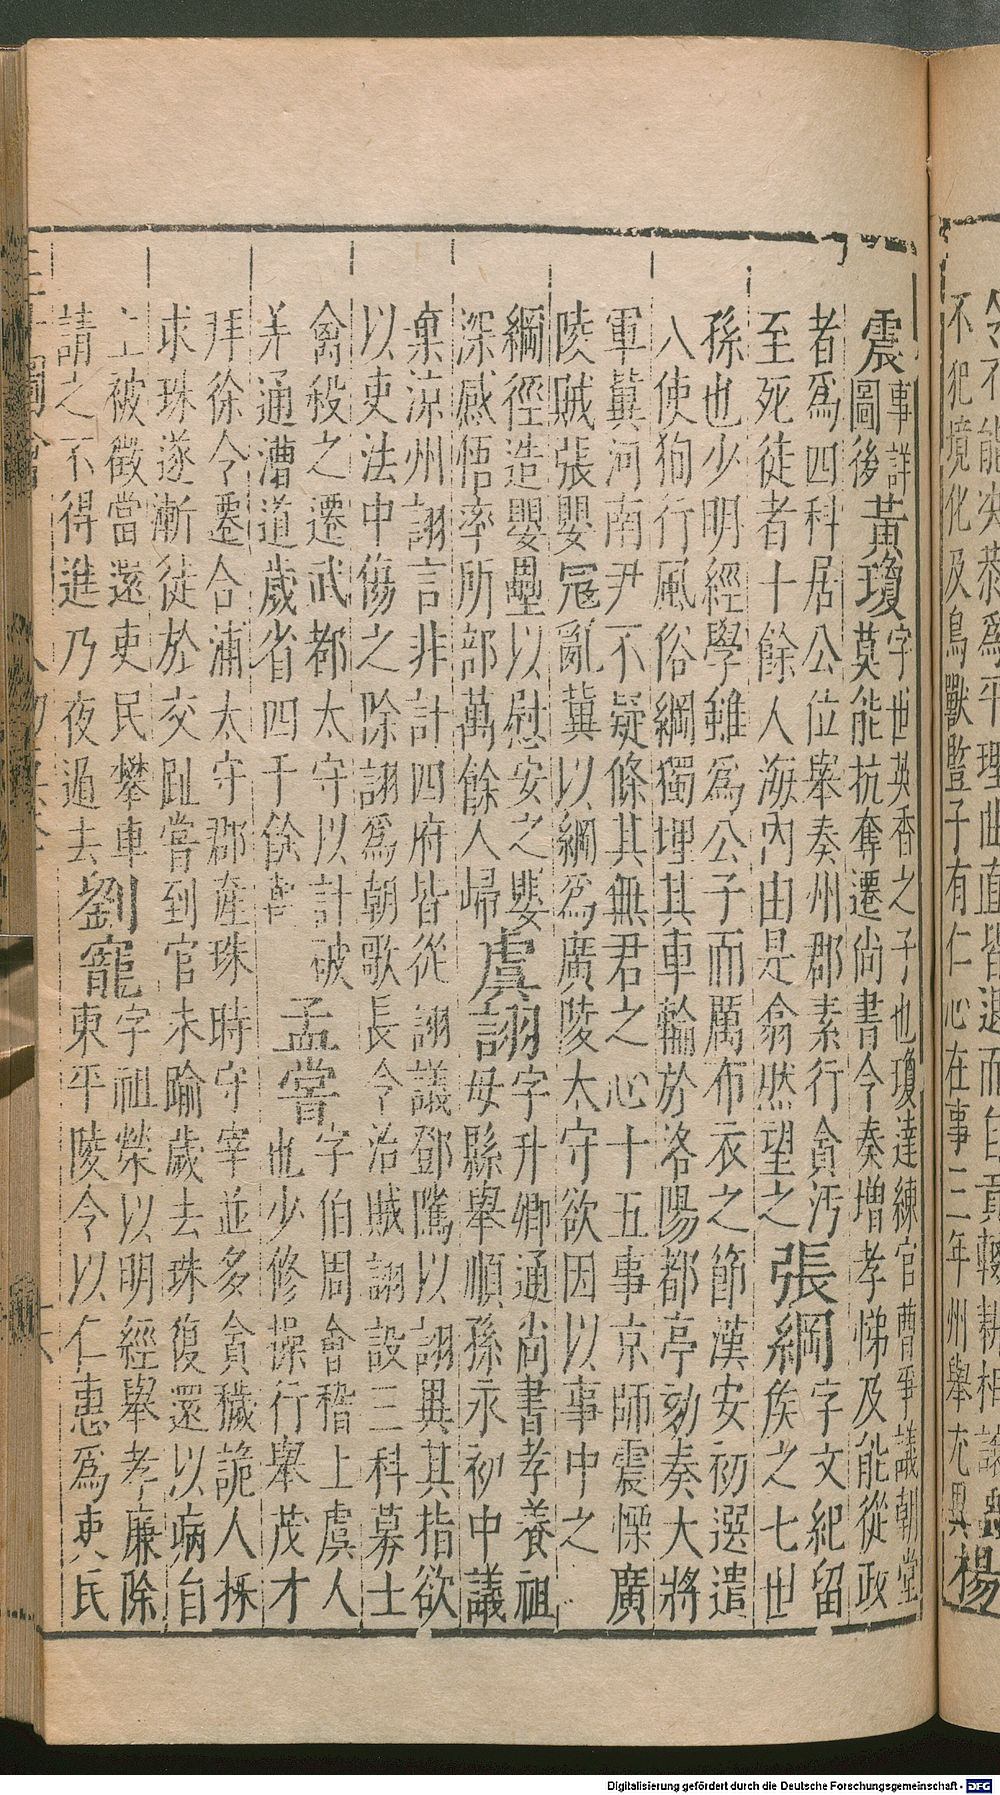 不能決恭為平理曲直皆退而自責輟耕相讓
不犯境化及鳥獸豎子有仁心在事三年州舉尤異楊
震事詳圖後黃瓊字世英香之子也瓊達練官曹爭議朝堂
莫能抗奪遷尚書令奏增孝悌及能從政
者為四科居公位舉奏州郡素行貪汚
至死徒者十餘人海內由是翕然望之張綱字文紀留
侯之七世
孫也少明經學雖為公子而厲布衣之節漢安初選遣
八使狥行風俗綱獨埋其車輪於洛陽都亭劾奏大將
軍冀河南尹不疑條其無君之心十五事京師震慄廣
陵賊張嬰寇亂冀以綱為廣陵太守欲因以事中之
綱徑造嬰壘以慰安之嬰
深感悟率所部萬餘人歸虞詡字升卿通尚書孝養祖
母縣舉順孫永初中議
棄涼州詡言非計四府皆從詡議鄧騭以詡異其指欲
以吏法中傷之除詡為朝歌長令治賊詡設三科募士
禽殺之遷武都太守以計破
羌通漕道歲省四千餘萬孟嘗字伯周會稽上虞人
也少修操行舉茂才
拜徐令遷合浦太守郡產珠時守宰並多貪穢詭人採
求珠遂漸徙於交趾嘗到官未踰歲去珠復還以病自
上被徵當還吏民攀車
請之不得進乃夜遁去劉寵字祖榮以明經舉孝廉除
東平陵令以仁惠為吏民
Digitalisierung gefördert durch die Deutsche Forschungsgemeinschaft - DFG